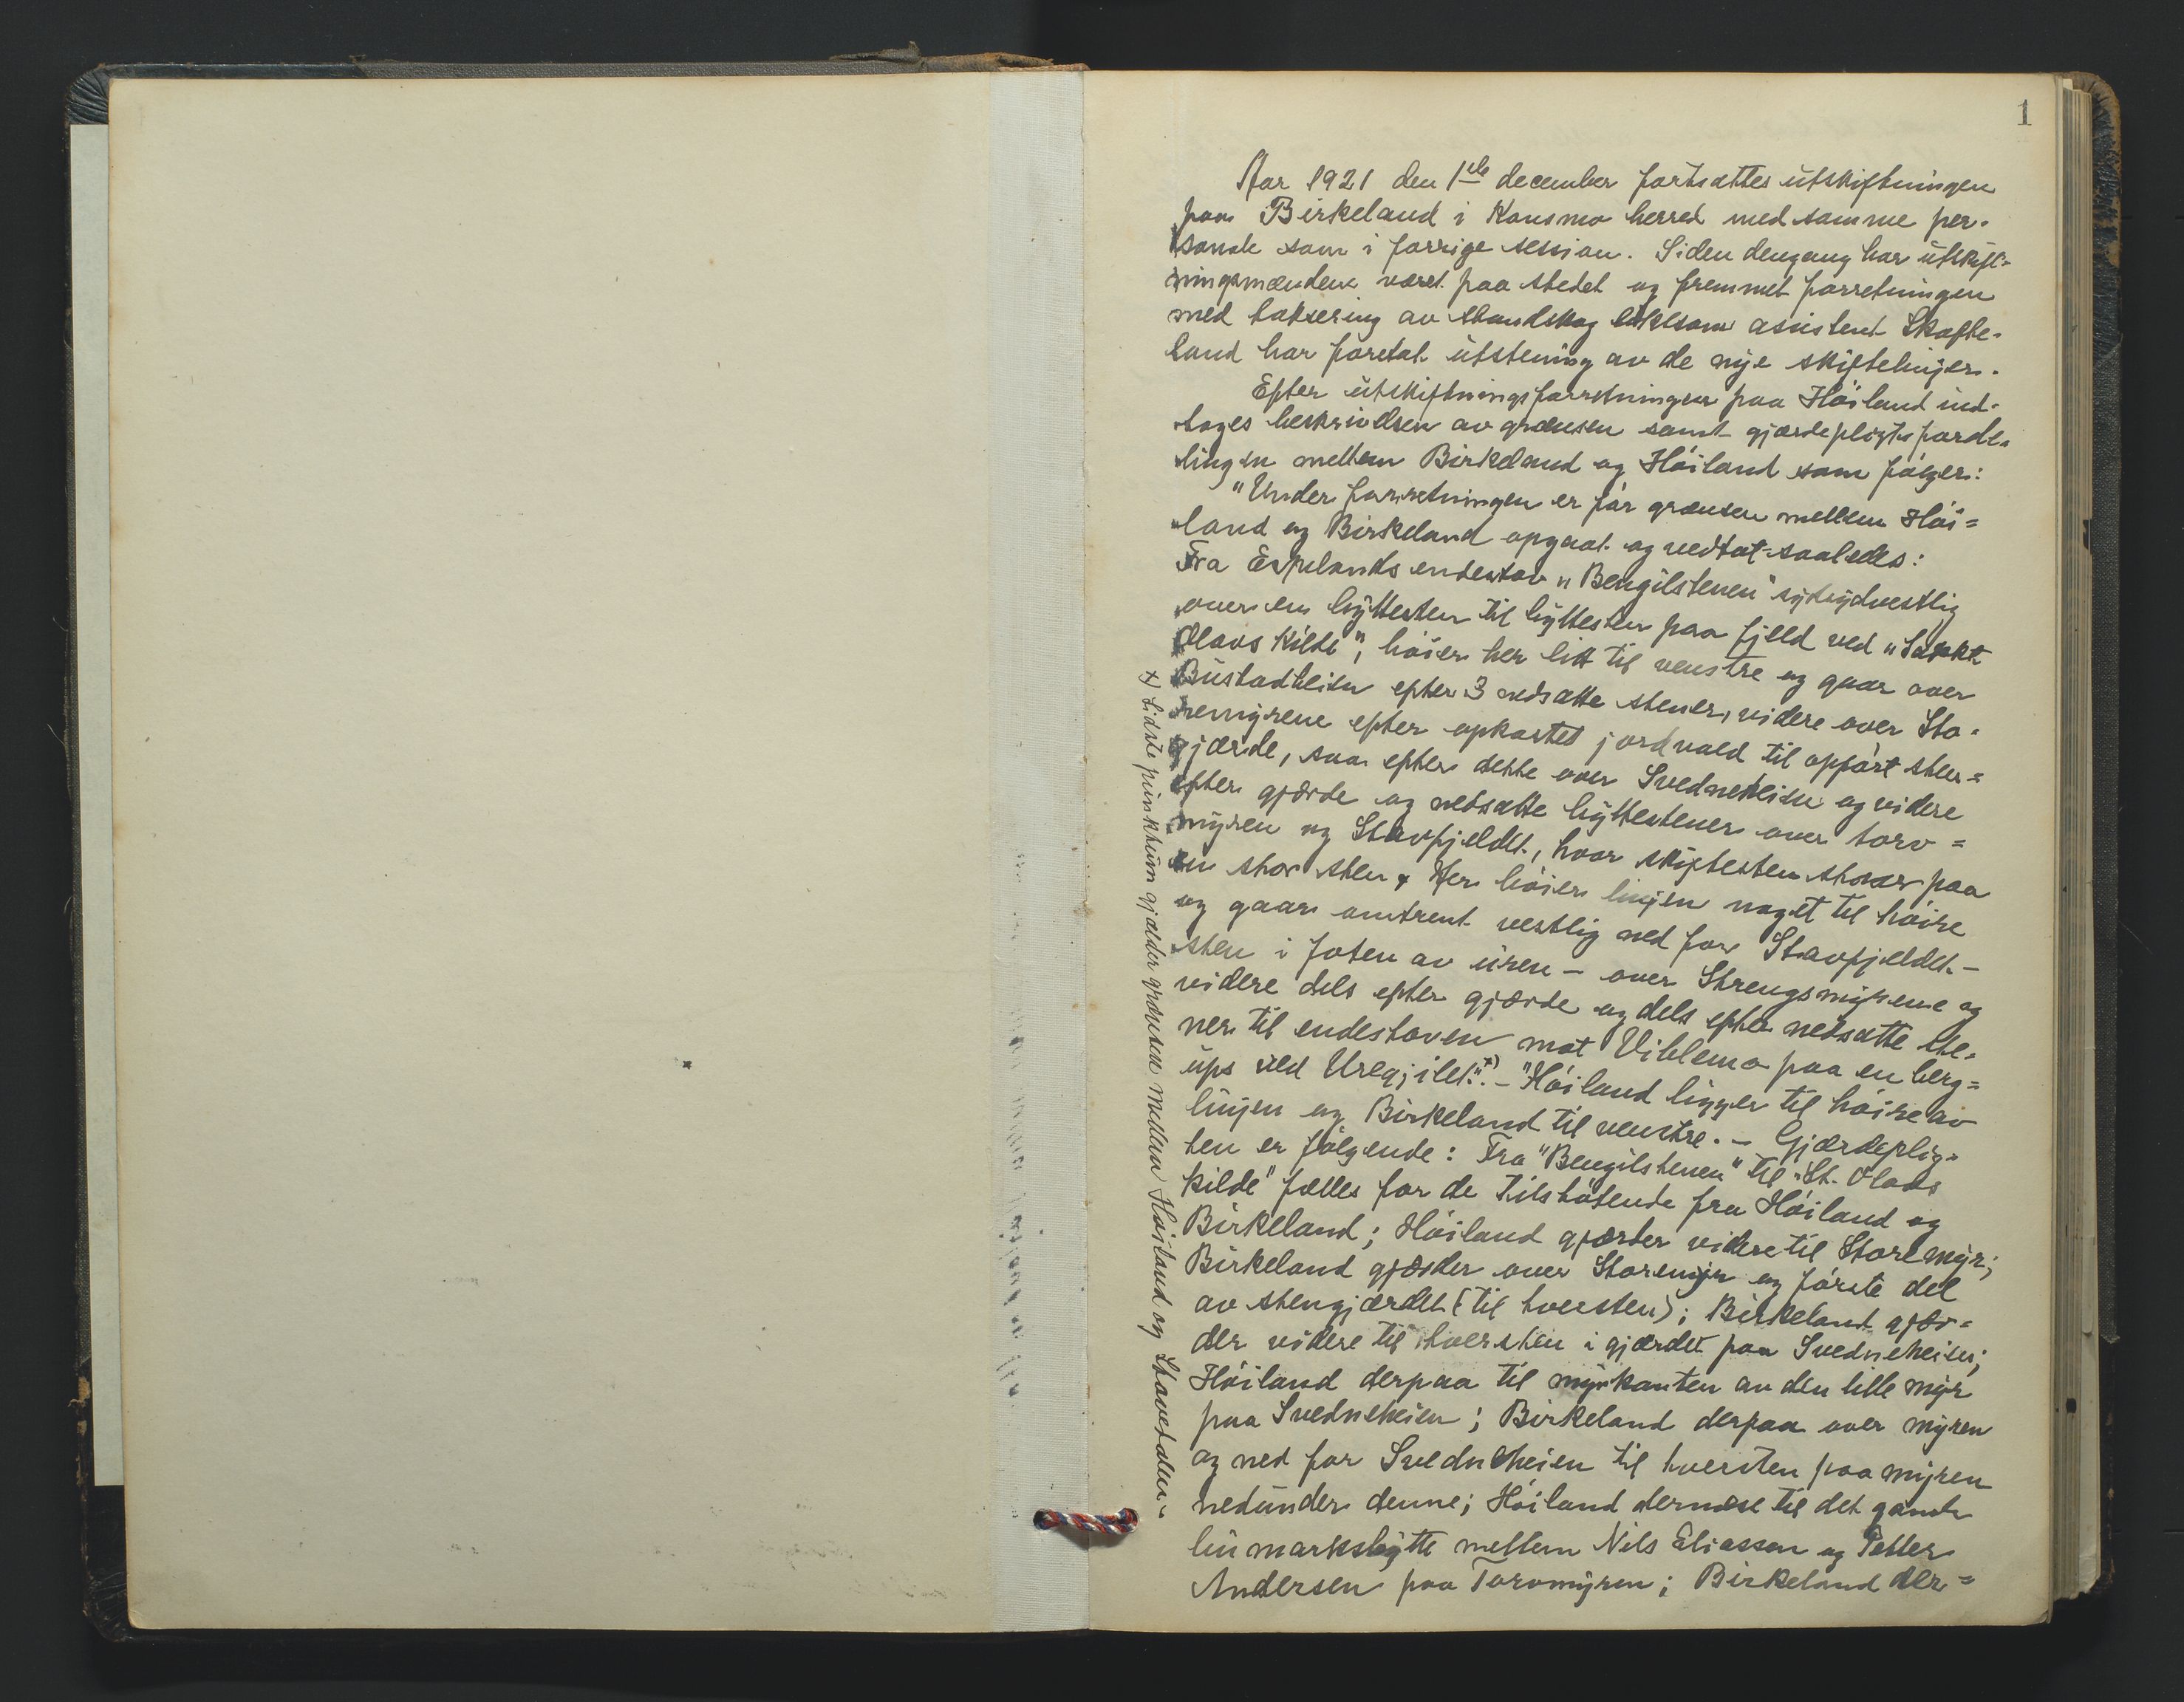 1
Aar 1921 den 1ste december fortsattes utskiftningen
paa Birkeland i Konsmo herred med samme per-
sonale som i forrige session. Siden dengang har utskift-
ningsmændene været paa stedet og fremmet forretningen
med taksering av standskog likesom assistent Skofte-
land har foretat utstening av de nye skiftelinjer.
Efter utskiftningsforretningen paa Höiland ind-
tages beskrivelsen av grænsen samt gjærdepligtsforde-
lingen mellem Birkeland og Höiland som følger:
"Under forretningen er før grænsen mellem Höi=
land og Birkeland opgaat og vedtat saaledes:
Fra Espelands endestav "Bengilstenen" sydsydvestlig
over en byttesten til byttesten paa fjeld ved "Sankt
Olavs Kilde", böier her litt til venstre og gaar over
Bustadheien efter 3 nedsatte stener, videre over Sto-
remyrene efter opkastet jordvold til opført sten=
gjærde, saa efter dette over Svedneheien og videre
efter gjærde og nedsatte byttestener over torv=
myren og Stavfjeldet, hvor skiftesten staar paa
en stor sten. Her böier linjen noget til höire
og gaar omtrent vestlig ned for Stavfjeldet -
sten i foten av uren - over Strengsmyrene og
videre dels efter gjærde og dels efter nedsatte ste-
ner til endestaven mot Viblemo paa en berg=
ups ved Uregjilet".x) - "Höiland ligger til höire av
linjen og Birkeland til venstre. - Gjærdeplig-
ten er følgende: Fra "Bengilstenen" til "St. Olavs
kilde" fælles for de tilstøtende fra Höiland og
Birkeland; Höiland gjærder videre til Storemyr;
Birkeland gjærder over Storemyr og første del
av stengjærdet (til tversten); Birkeland gjær=
der videre til tversten i gjærdet paa Svedneheien;
Höiland derpaa til myrkanten av den lille myr
paa Svedneheien; Birkeland derpaa over myren
og ned for Svedneheien til tversten paa myren
nedunder denne; Höiland dernæst til det gamle
bumarksbytte mellem Nils Eliassen og Petter
Andersen paa Torvmyren; Birkeland der=
x) Sidste punktum gjælder grænsen mellem Höiland og Stavetdeln.-